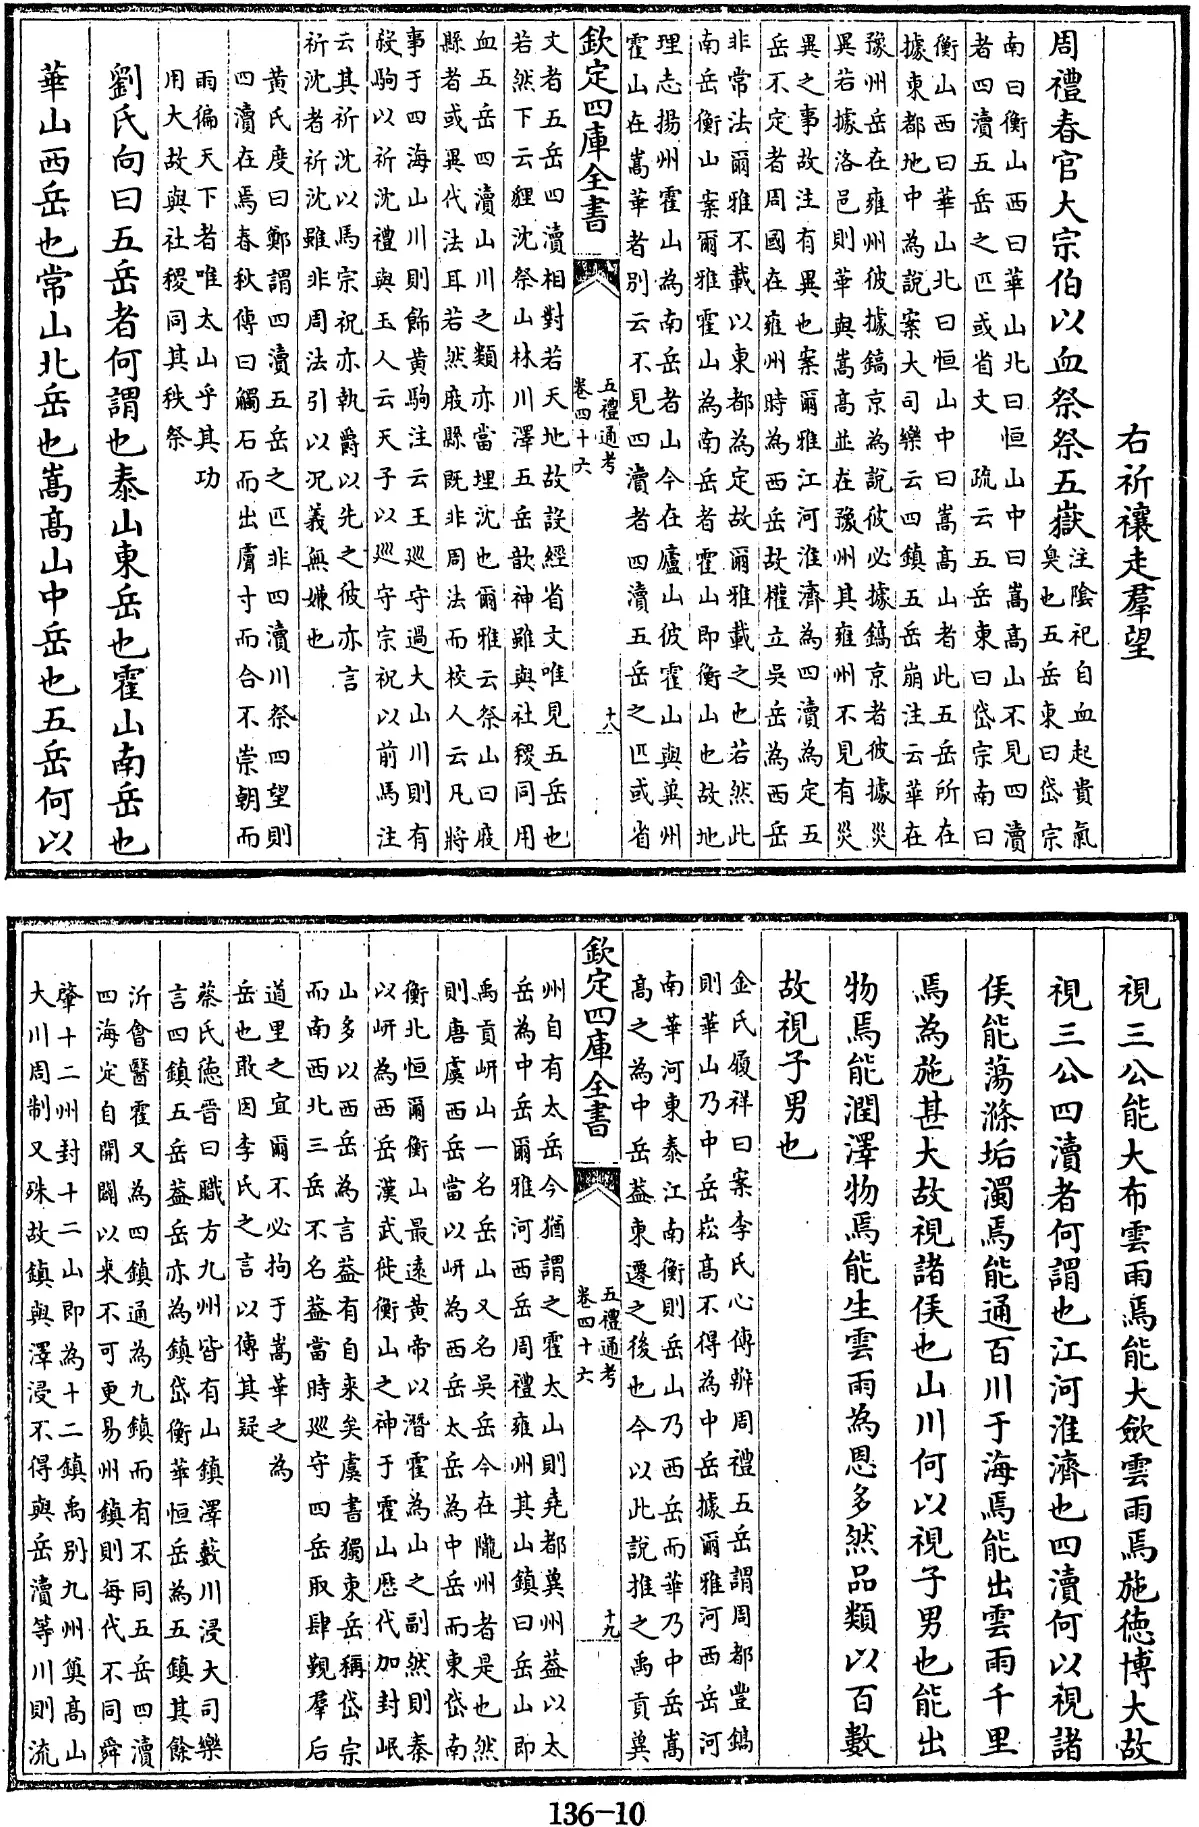 右祈禳走羣望
周禮春官大宗伯以血祭祭五嶽注陰祀自血起貴氣
臭也五岳東曰岱宗
南曰衡山西曰華山北曰恒山中曰嵩高山不見四瀆
者四瀆五岳之匹或省文 疏云五岳東曰岱宗南曰
衡山西曰華山北曰恒山中曰嵩高山者此五岳所在
據東都地中為說案大司樂云四鎮五岳崩注云華在
豫州岳在雍州彼據鎬京為說彼必據鎬京者彼據災
異若據洛邑則華與嵩高並在豫州其雍州不見有災
異之事故注有異也案爾雅江河淮濟為四瀆為定五
岳不定者周國在雍州時為西岳故權立吳岳為西岳
非常法爾雅不載以東都為定故爾雅載之也若然此
南岳衡山案爾雅霍山為南岳者霍山即衡山也故地
理志揚州霍山為南岳者山今在廬山彼霍山與冀州
霍山在嵩華者別云不見四瀆者四瀆五岳之匹或省
欽定四庫全書
五禮通考
卷四十六
十八
文者五岳四瀆相對若天地故設經省文唯見五岳也
若然下云貍沈祭山林川澤五岳歆神雖與社稷同用
血五岳四瀆山川之類亦當埋沈也爾雅云祭山曰庪
縣者或異代法耳若然庪縣既非周法而校人云凡將
事于四海山川則飾黄駒注云王巡守過大山川則有
殺駒以祈沈禮與玉人云天子以巡守宗祝以前馬注
云其祈沈以馬宗祝亦執爵以先之彼亦言
祈沈者祈沈雖非周法引以况義無嫌也
黄氏度曰鄭謂四瀆五岳之匹非四瀆川祭四望則
四瀆在焉春秋傳曰觸石而出膚寸而合不崇朝而
雨徧天下者唯太山乎其功
用大故與社稷同其秩祭
劉氏向曰五岳者何謂也泰山東岳也霍山南岳也
華山西岳也常山北岳也嵩高山中岳也五岳何以
視三公能大布雲雨焉能大斂雲雨焉施徳博大故
視三公四瀆者何謂也江河淮濟也四瀆何以視諸
侯能蕩滌垢濁焉能通百川于海焉能出雲雨千里
焉為施甚大故視諸侯也山川何以視子男也能出
物焉能潤澤物焉能生雲雨為恩多然品類以百數
故視子男也
金氏履祥曰案李氏心傳辨周禮五岳謂周都豐鎬
則華山乃中岳崧高不得為中岳據爾雅河西岳河
南華河東泰江南衡則岳山乃西岳而華乃中岳嵩
高之為中岳葢東遷之後也今以此說推之禹貢冀
欽定四庫全書
五禮通考
卷四十六
十九
州自有太岳今猶謂之霍太山則堯都冀州葢以太
岳為中岳爾雅河西岳周禮雍州其山鎮曰岳山即
禹貢岍山一名岳山又名吳岳今在隴州者是也然
則唐虞西岳當以岍為西岳太岳為中岳而東岱南
衡北恒爾衡山最逺黄帝以潛霍為山之副然則泰
以岍為西岳漢武徙衡山之神于霍山厯代加封岷
山多以西岳為言葢有自来矣虞書獨東岳稱岱宗
而南西北三岳不名葢當時巡守四岳取肆覲羣后
道里之宜爾不必拘于嵩華之為
岳也敢因李氏之言以傳其疑
蔡氏徳晋曰職方九州皆有山鎮澤藪川浸大司樂
言四鎮五岳葢岳亦為鎮岱衡華恒岳為五鎮其餘
沂會醫霍又為四鎮通為九鎮而有不同五岳四瀆
四海定自開闢以来不可更易州鎮則每代不同舜
肇十二州封十二山即為十二鎮禹別九州奠高山
大川周制又殊故鎮與澤浸不得與岳瀆等川則流
136-10